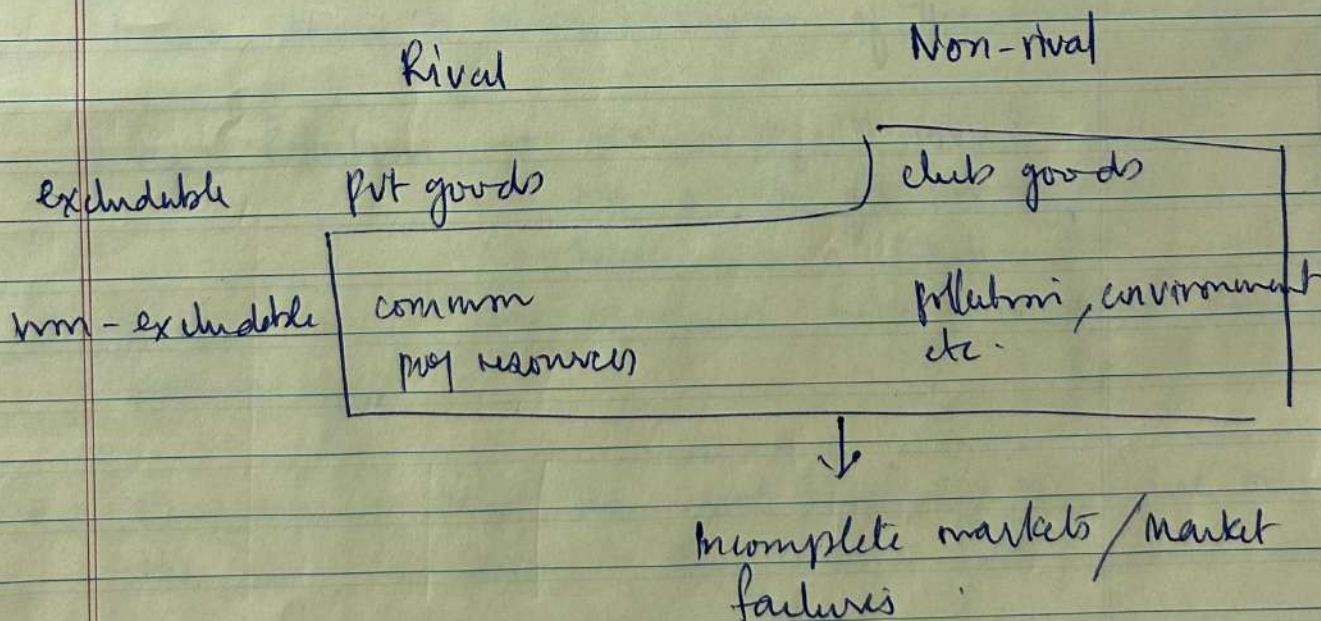 Rival Non-rival
excludable Pvt goods club goods
non-excludable common pollution, environment
resources etc.
Incomplete markets / market
failures